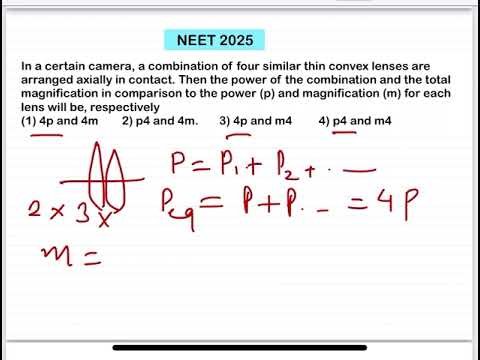 NEET 2025
In a certain camera, a combination of four similar thin convex lenses are
arranged axially in contact. Then the power of the combination and the total
magnification in comparison to the power (p) and magnification (m) for each
lens will be, respectively
(1) 4p and 4m 2) p4 and 4m. 3) 4p and m4 4) p4 and m4
P = P1 + P2 + . —
2 × 3 × Peq = P + P . . – = 4P
m =